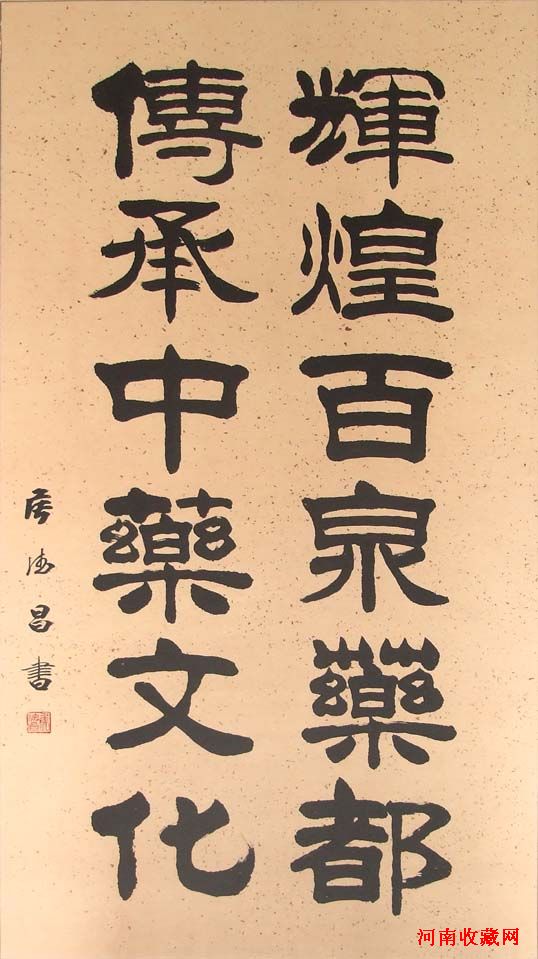 輝煌百泉藥都
傳承中藥文化
德昌書
河南收藏网